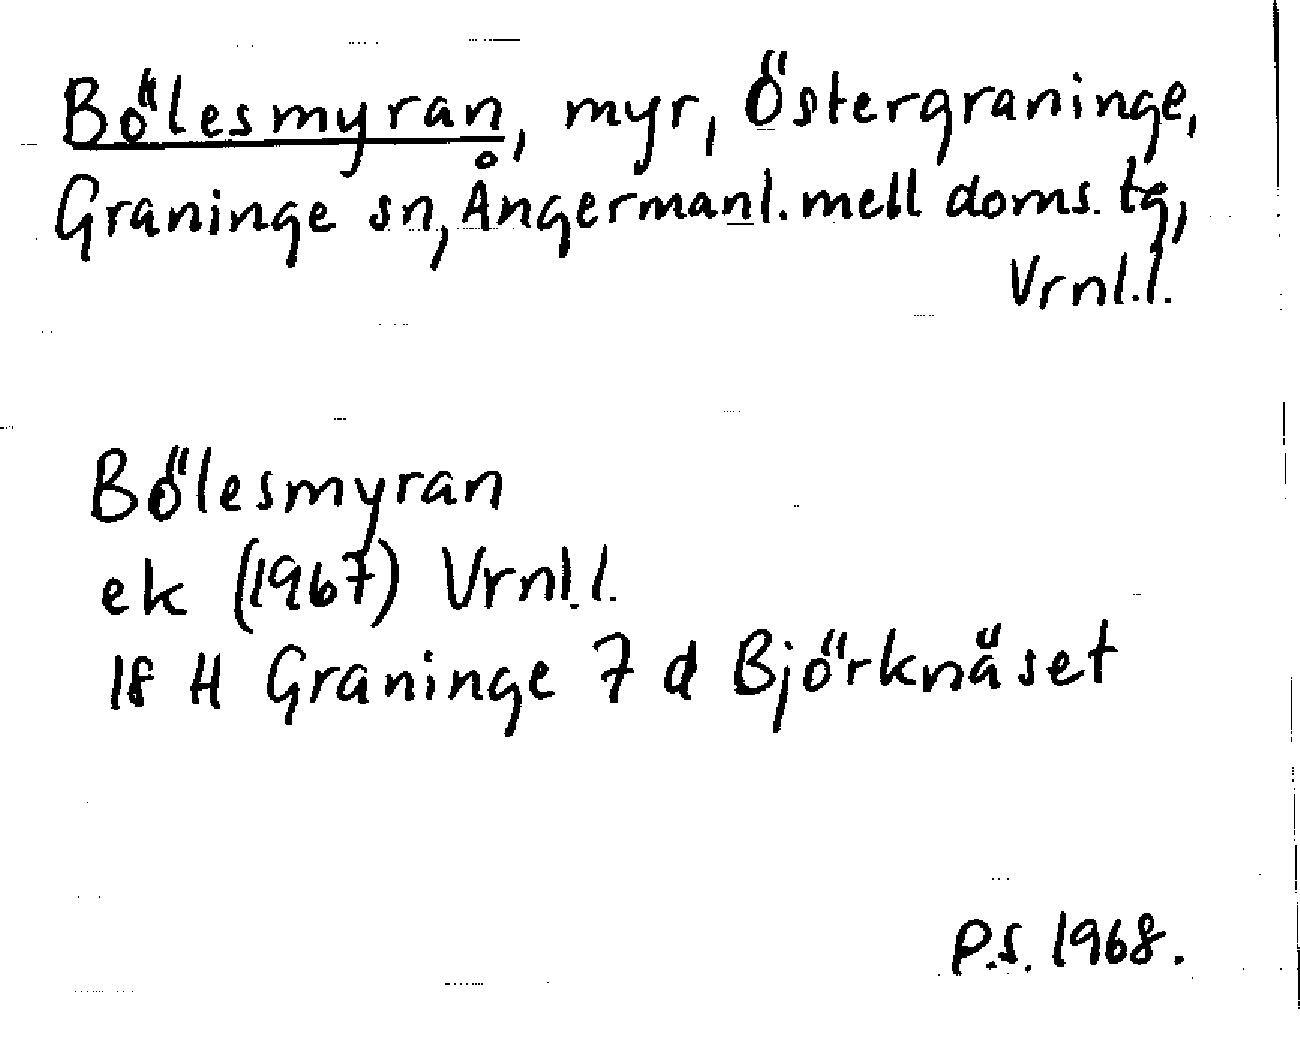 Bölesmyran, myr, Östergraninge,
Graninge sn, Ångermanl. mell doms. tg,
Vrnl. l.
Bölesmyran
ek (1967) Vrnl. l.
18 H Graninge 7 d Björknäset
P.S. 1968.